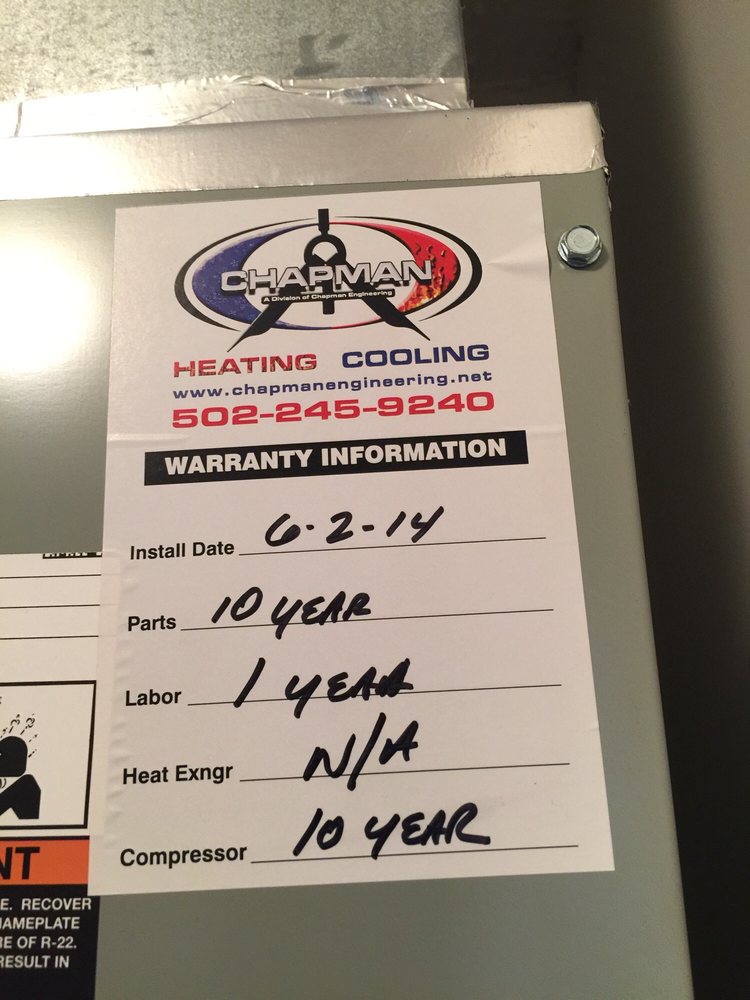 CHAPMAN
A Division of Chapman Engineering
HEATING COOLING
www.chapmanengineering.net
502-245-9240
WARRANTY INFORMATION
Install Date 6-2-14
Parts 10 YEAR
Labor 1 YEAR
Heat Exngr N/A
Compressor 10 YEAR
NT
E. RECOVER
NAMEPLATE
RE OF R-22.
RESULT IN